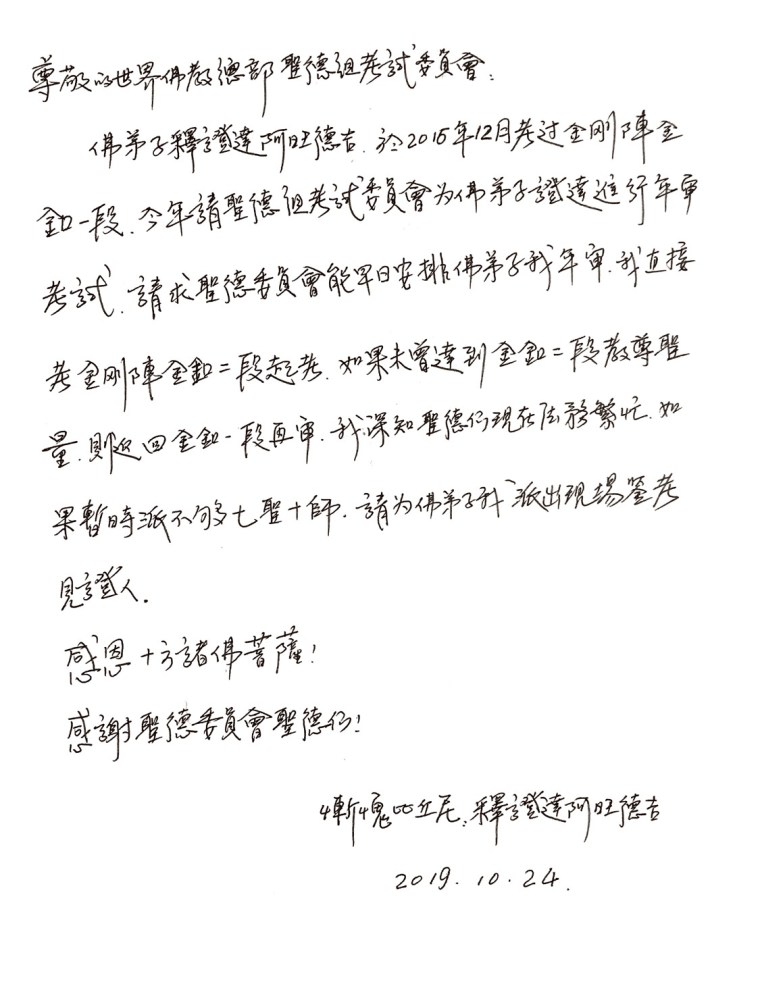 尊敬的世界佛教總部聖德組考試委員會：
佛弟子釋證達阿旺德吉，於2015年12月考过金剛陣金
釦一段，今年請聖德組考試委員會为佛弟子證達進行年審
考試，請求聖德委員會能早日安排佛弟子我年审，我直接
考金刚陣金釦二段起考，如果未曾達到金釦二段教尊聖
量，則返回金釦一段再审，我深知聖德们現在法務繁忙，如
果暫時派不够七聖十師，請为佛弟子我派出現場签考
見證人。
感恩十方諸佛菩薩！
感謝聖德委員會聖德们！
慚愧比丘尼：釋證達阿旺德吉
2019.10.24.